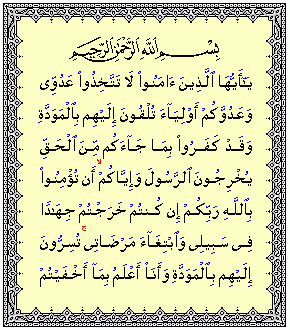 بِسْمِ اللَّهِ الرَّحْمَٰنِ الرَّحِيمِ
يَـٰٓأَيُّهَا ٱلَّذِينَ ءَامَنُوا۟ لَا تَتَّخِذُوا۟ عَدُوِّى
وَعَدُوَّكُمْ أَوْلِيَآءَ تُلْقُونَ إِلَيْهِم بِٱلْمَوَدَّةِ
وَقَدْ كَفَرُوا۟ بِمَا جَآءَكُم مِّنَ ٱلْحَقِّ
يُخْرِجُونَ ٱلرَّسُولَ وَإِيَّاكُمْ ۙ أَن تُؤْمِنُوا۟
بِٱللَّهِ رَبِّكُمْ إِن كُنتُمْ خَرَجْتُمْ جِهَـٰدًا
فِى سَبِيلِى وَٱبْتِغَآءَ مَرْضَاتِى ۚ تُسِرُّونَ
إِلَيْهِم بِٱلْمَوَدَّةِ وَأَنَا۠ أَعْلَمُ بِمَآ أَخْفَيْتُمْ